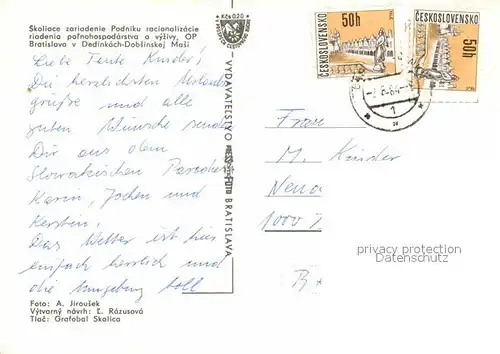 Školiace zariadenie Podniku racionalizácie
riadenia poľnohospodárstva a výživy, OP
Bratislava v Dedinkách-Dobšinskej Maši
Kčs 0,20
Liebe Tante Kinder!
Die herzlichsten Urlaubs-
grüße und alle
guten Wünsche senden
Dir aus dem
Slowakischen Paradies
Karin, Jochen und
Kerstin.
Das Wetter ist hier
einfach herrlich und
die Umgebung toll
Foto: A. Jiroušek
Výtvarný návrh: Ľ. Rázusová
Tlač: Grafobal Skalica
VYDAVATEĽSTVO BRATISLAVA
50h
ČESKOSLOVENSKO
50h
ČESKOSLOVENSKO
1
Frau
M. Kinder
1000
privacy protection
Datenschutz